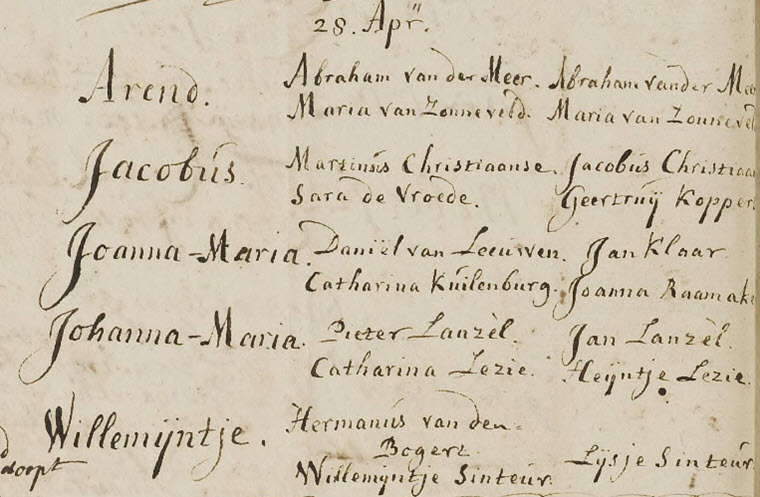 28. Apr.
Arend. Abraham van der Meer. Abraham vander Mee
Maria van Zonneveld. Maria van Zonnevel
Jacobus. Martinus Christiaanse. Jacobus Christiaan
Sara de Vroede. Geertruij Koppers
Joanna-Maria. Daniël van Leeuwen. Jan Klaar.
Catharina Kuilenburg. Joanna Raamake
Johanna-Maria. Pieter Lanzèl. Jan Lanzèl.
Catharina Lezie. Heijntje Lezie.
Willemijntje. Hermanus van den
Bogert.
doopt Willemijntje Sinteur. Lijsje Sinteur.